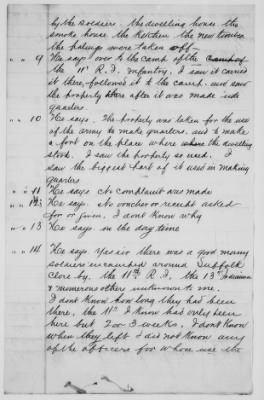 by the soldiers. The dwelling house the
smoke house the Kitchen the new timber
the palings were taken off—
" " 9 He says over to the camp of the camp of
the 11" R. I. Infantry, I saw it carried
it there, followed it to the camp. and saw
the property there after it was made into
quarters.
" " 10 He says. The property was taken for the use
of the army to make quarters, and to make
a fort on the place where the dwelling
stood. I saw the property so used. I
saw the biggest part of it used in making
quarters
" " 11 He says No complaint was made
" " 12 He says No voucher or receipt asked
for or given. I dont know why
" " 13 He says in the day time
" " 14 He says yes sir there was a good many
soldiers encamped around Suffolk
Close by the 11th R. I. the 13th Indiana
& numerous other unknown to me.
I dont know how long they had been
there, the 11" I know had only been
here but 2 or 3 weeks. I dont know
when they left I did not know any
of the officers for whom use the